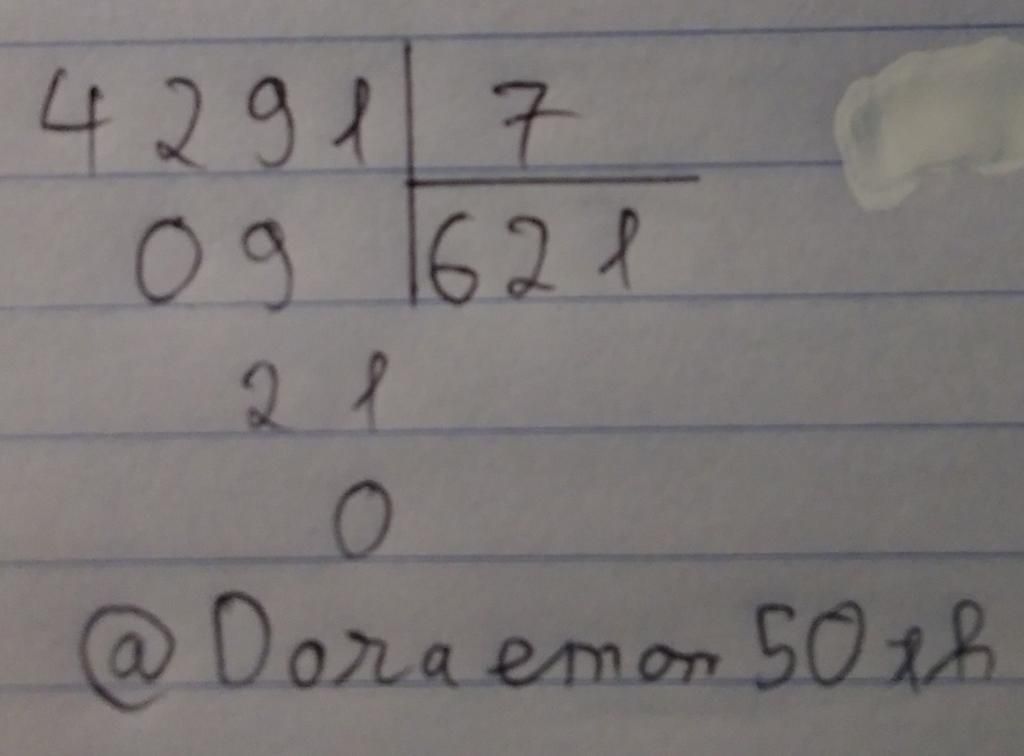 4291 7
09 621
21
0
@Doraemon50th